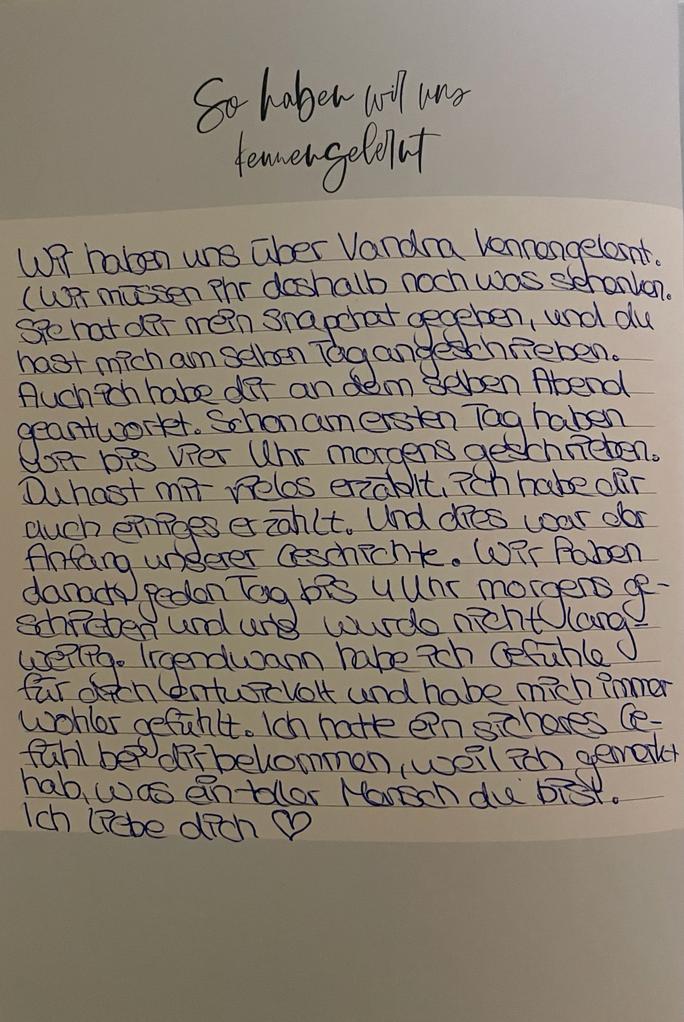 So haben wir uns
kennengelernt
Wir haben uns über Vandra kennengelernt.
(Wir müssen ihr deshalb noch was schenken.
Sie hat dir mein Snapchat gegeben, und du
hast mich am selben Tag angeschrieben.
Auch ich habe dir an dem selben Abend
geantwortet. Schon am ersten Tag haben
wir bis vier Uhr morgens geschrieben.
Du hast mir vieles erzählt, ich habe dir
auch einiges erzählt. Und dies war der
Anfang unserer Geschichte. Wir haben
danach jeden Tag bis 4 Uhr morgens ge-
schrieben und uns wurde nicht lang-
weilig. Irgendwann habe ich Gefühle
für dich entwickelt und habe mich immer
wohler gefühlt. Ich hatte ein sicheres Ge-
fühl bei dir bekommen, weil ich gemerkt
hab, was ein toller Mensch du bist.
Ich liebe dich ♡